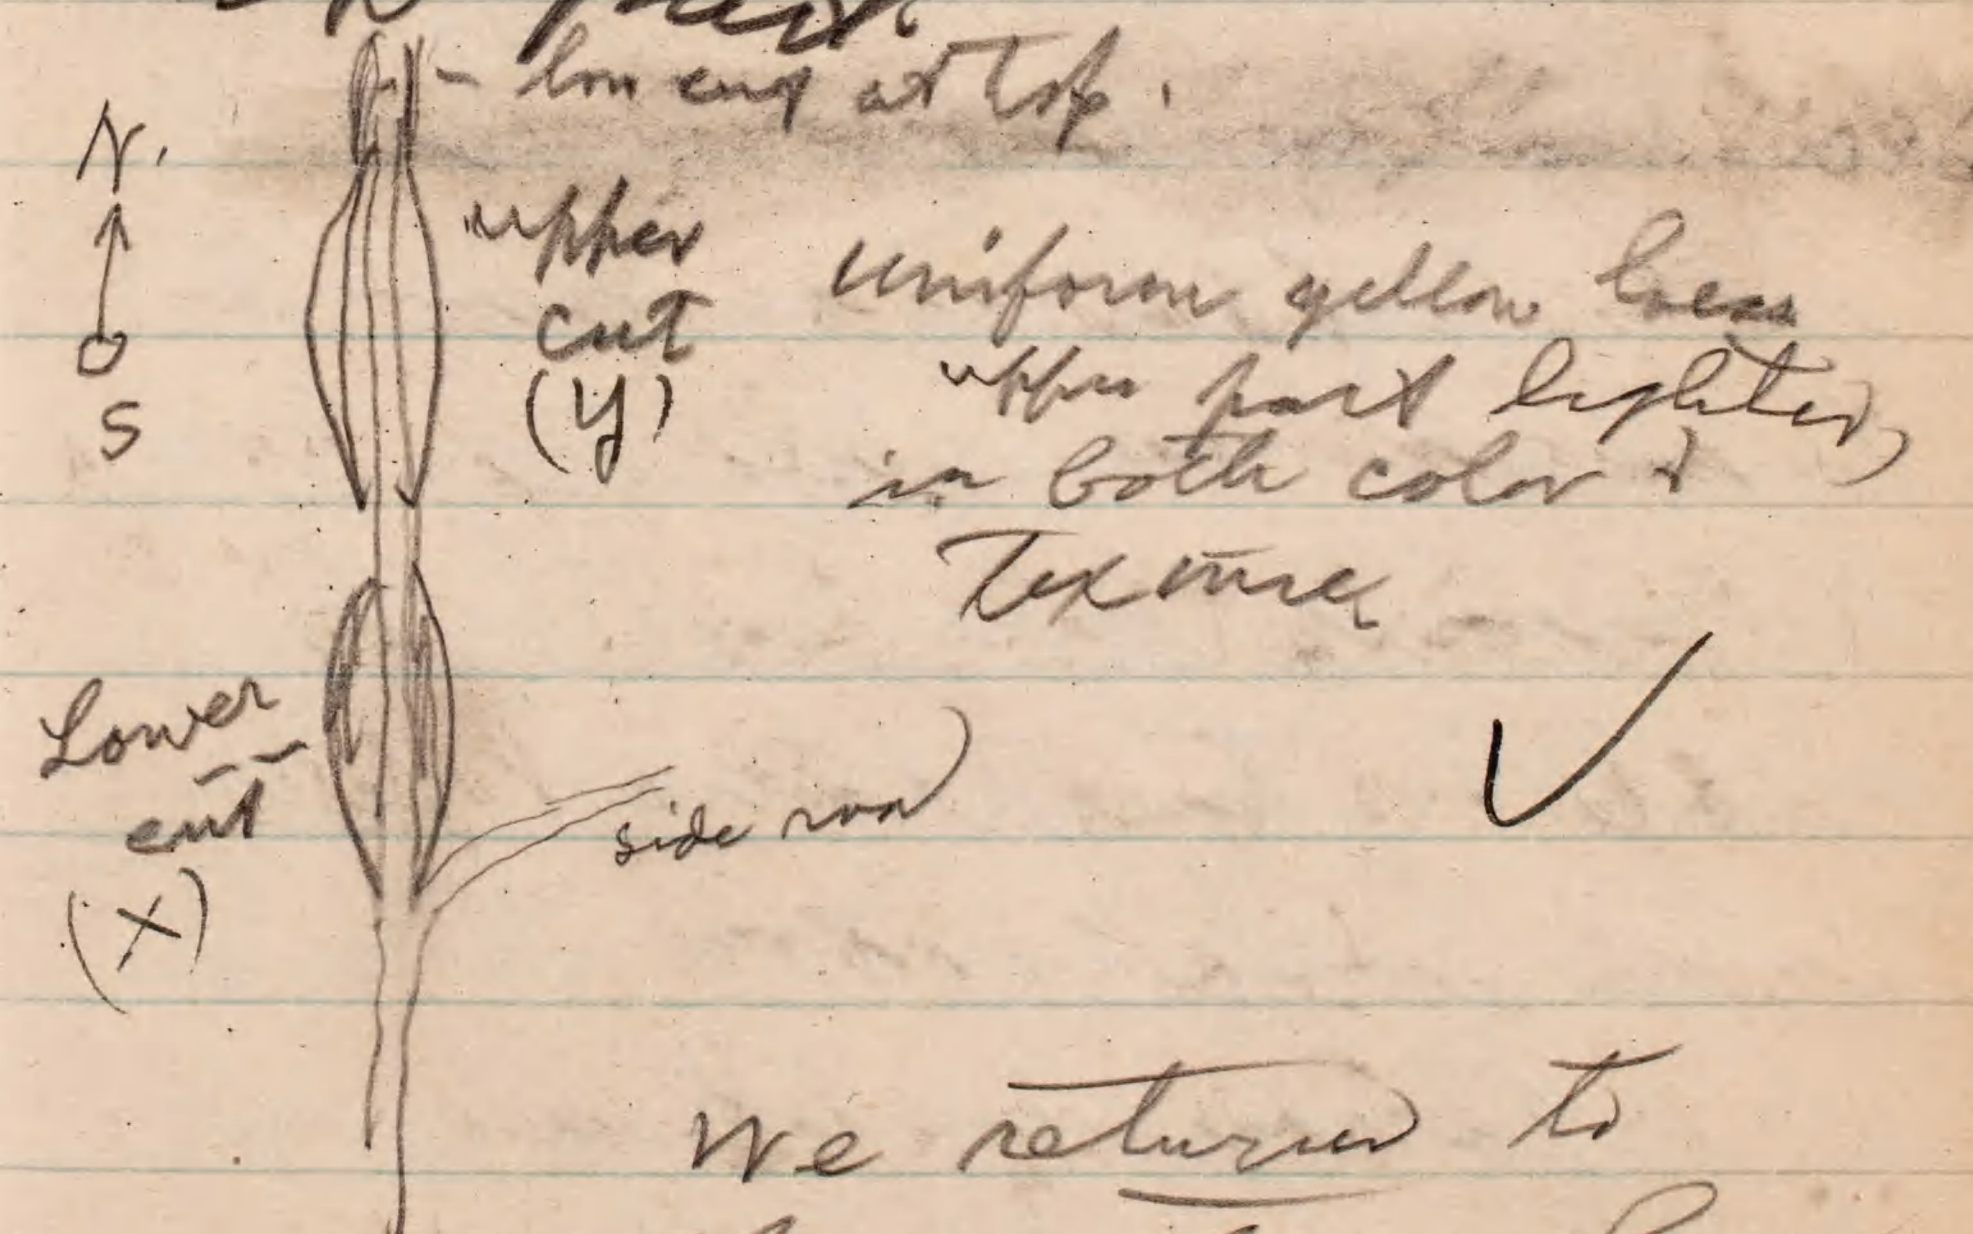 part.
- low cut at top.
N.
upper
cut
(y)
uniform yellow loess
upper part lighter,
in both color &
texture
S
Lower
cut
(X)
side road
We returned to